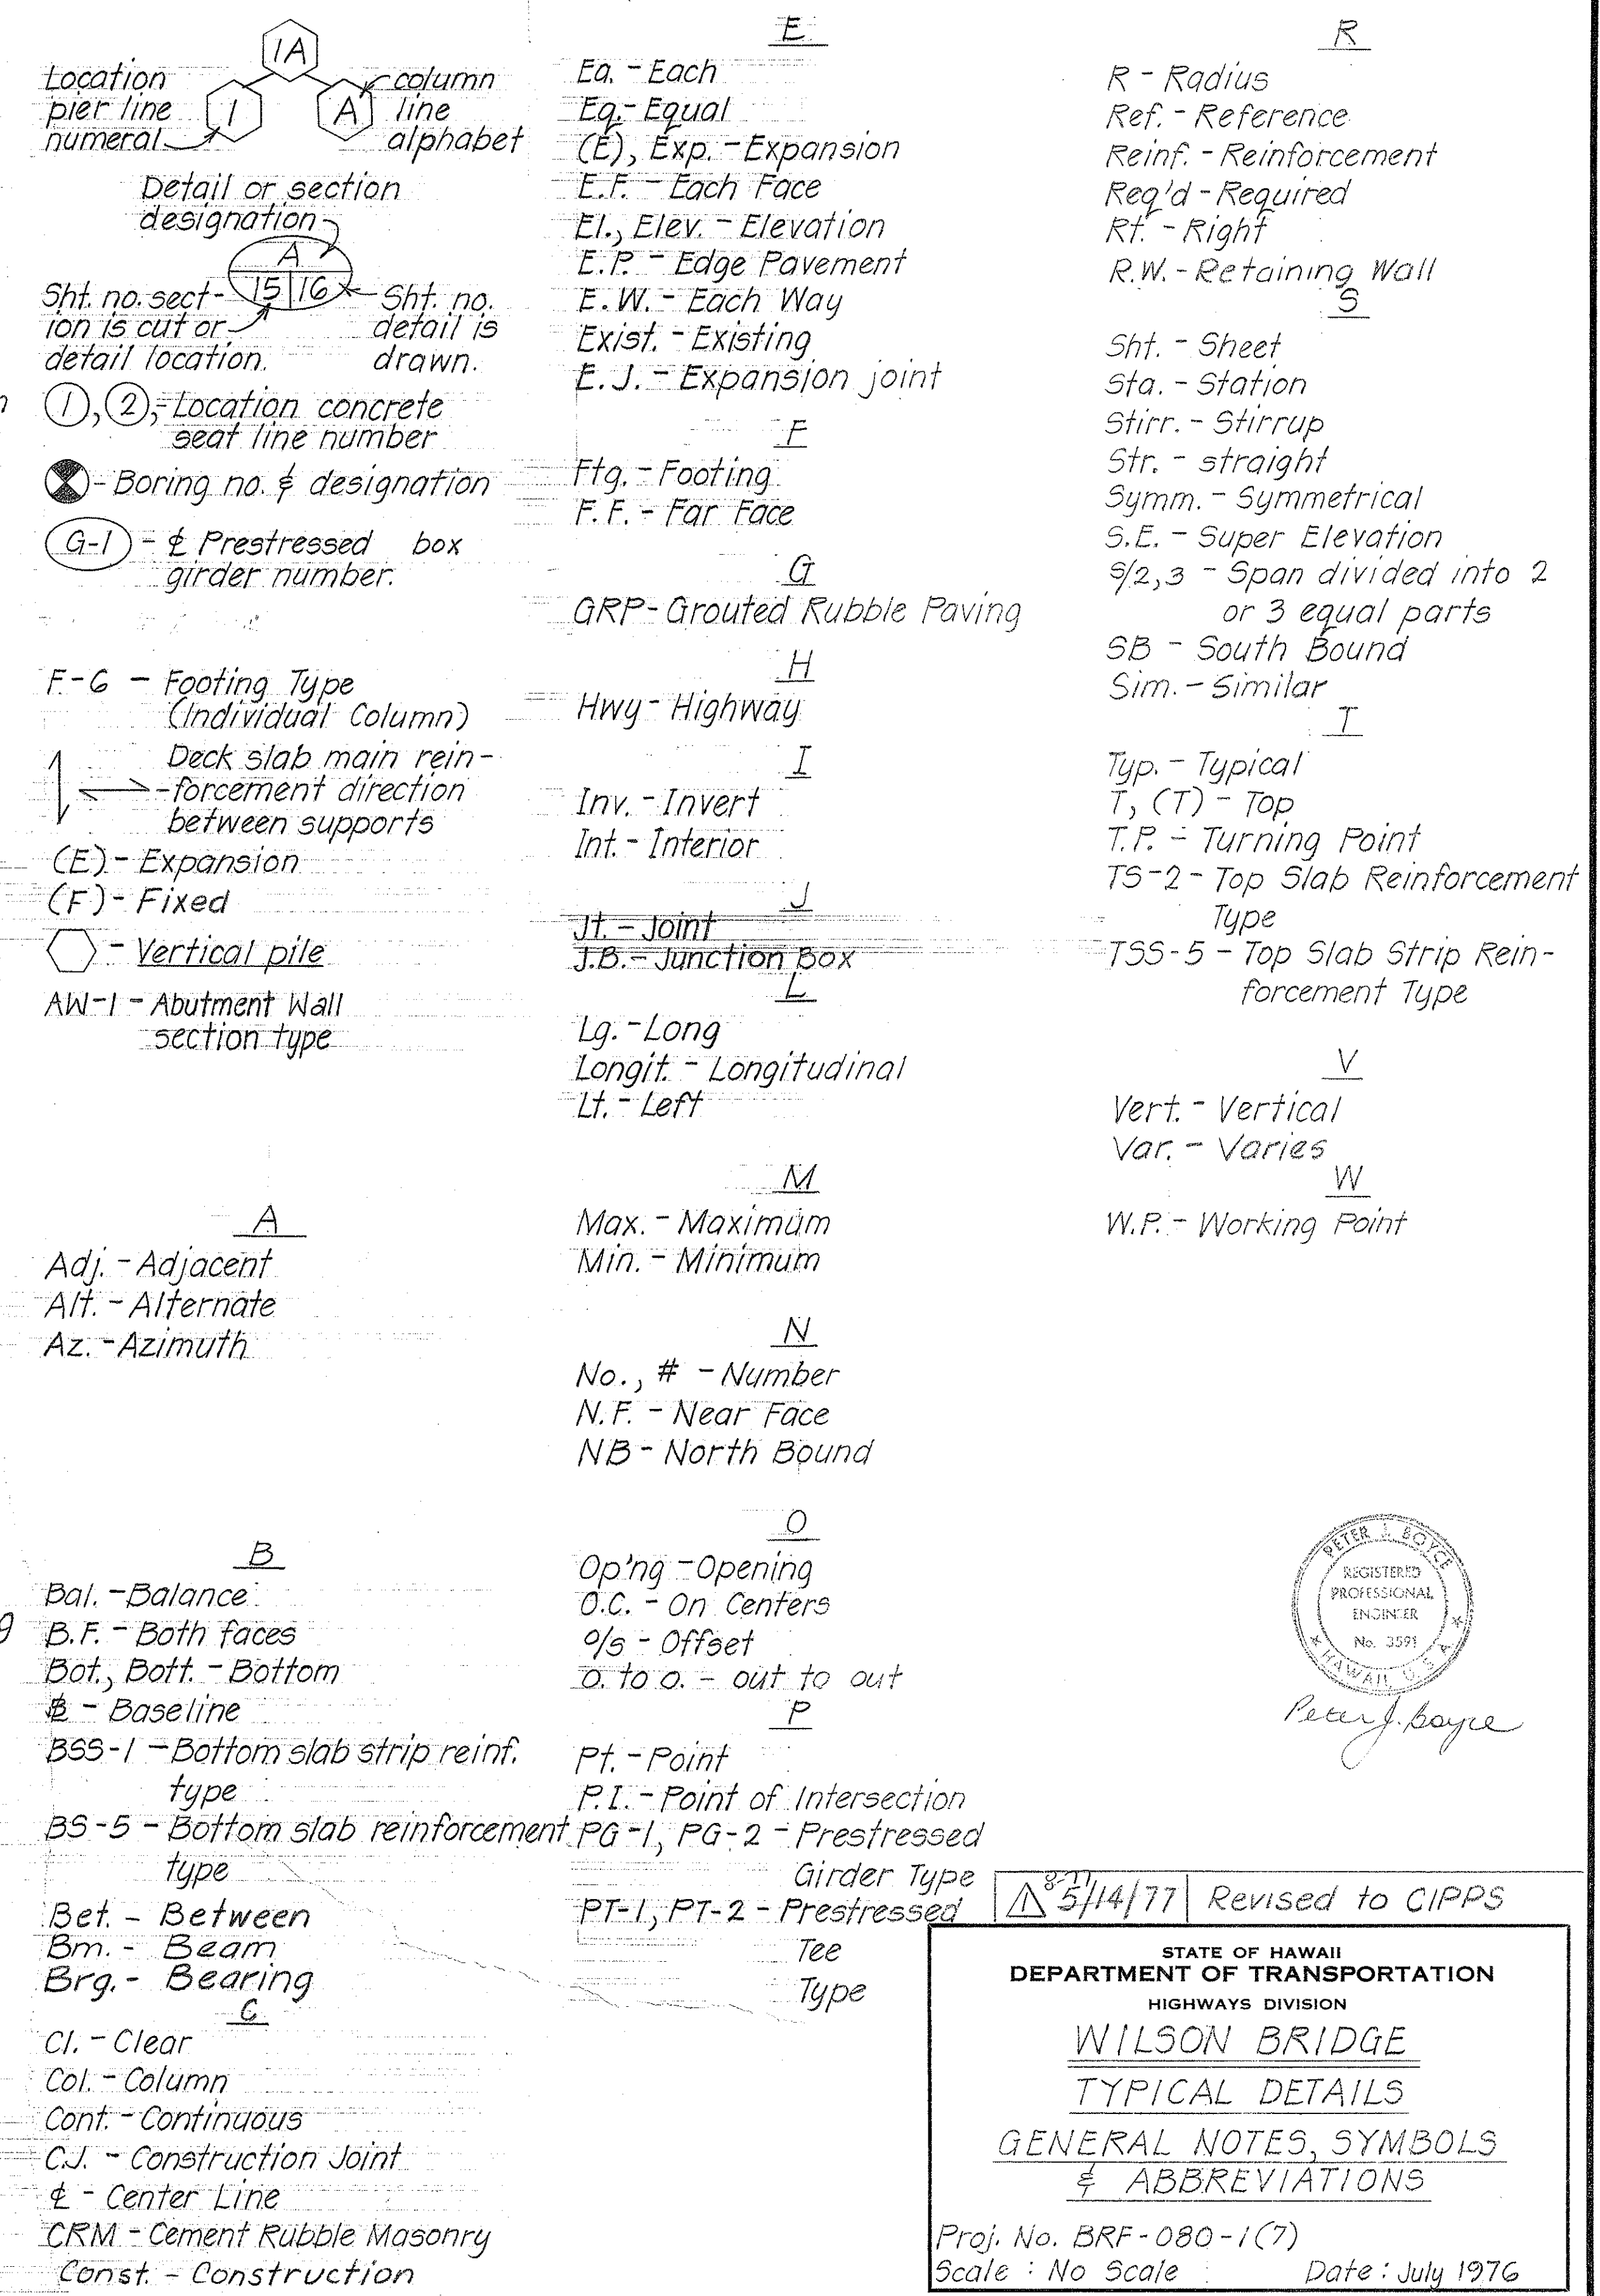 1A
Location
pier line
numeral
1
A
column
line
alphabet
Detail or section
designation
A
15 16
Sht. no. sect-
ion is cut or
detail location.
Sht. no.
detail is
drawn.
1, 2, - Location concrete
seat line number
- Boring no. & designation
G-1 - ℄ Prestressed box
girder number.
F-6 - Footing Type
(Individual Column)
Deck slab main rein-
forcement direction
between supports
(E) - Expansion
(F) - Fixed
- Vertical pile
AW-1 - Abutment Wall
section type
A
Adj. - Adjacent
Alt. - Alternate
Az. - Azimuth
B
Bal. - Balance
B.F. - Both faces
Bot., Bott. - Bottom
- Baseline
BSS-1 - Bottom slab strip reinf.
type
BS-5 - Bottom slab reinforcement
type
Bet. - Between
Bm. - Beam
Brg. - Bearing
C
Cl. - Clear
Col. - Column
Cont. - Continuous
C.J. - Construction Joint
℄ - Center Line
CRM - Cement Rubble Masonry
Const. - Construction
E
Ea. - Each
Eq. - Equal
(E), Exp. - Expansion
E.F. - Each Face
El., Elev. - Elevation
E.P. - Edge Pavement
E.W. - Each Way
Exist. - Existing
E.J. - Expansion joint
F
Ftg. - Footing
F.F. - Far Face
G
GRP - Grouted Rubble Paving
H
Hwy - Highway
I
Inv. - Invert
Int. - Interior
J
Jt. - Joint
J.B. - Junction Box
L
Lg. - Long
Longit. - Longitudinal
Lt. - Left
M
Max. - Maximum
Min. - Minimum
N
No., # - Number
N.F. - Near Face
NB - North Bound
O
Op'ng - Opening
O.C. - On Centers
o/s - Offset
O. to O. - out to out
P
Pt. - Point
P.I. - Point of Intersection
PG-1, PG-2 - Prestressed
Girder Type
PT-1, PT-2 - Prestressed
Tee
Type
R
R - Radius
Ref. - Reference
Reinf. - Reinforcement
Req'd - Required
Rt. - Right
R.W. - Retaining Wall
S
Sht. - Sheet
Sta. - Station
Stirr. - Stirrup
Str. - straight
Symm. - Symmetrical
S.E. - Super Elevation
S/2,3 - Span divided into 2
or 3 equal parts
SB - South Bound
Sim. - Similar
T
Typ. - Typical
T, (T) - Top
T.P. - Turning Point
TS-2 - Top Slab Reinforcement
Type
TSS-5 - Top Slab Strip Rein-
forcement Type
V
Vert. - Vertical
Var. - Varies
W
W.P. - Working Point
PETER J. BOYCE
REGISTERED
PROFESSIONAL
ENGINEER
No. 3591
HAWAII, U.S.A.
Peter J. Boyce
5/14/77 Revised to CIPPS
STATE OF HAWAII
DEPARTMENT OF TRANSPORTATION
HIGHWAYS DIVISION
WILSON BRIDGE
TYPICAL DETAILS
GENERAL NOTES, SYMBOLS
& ABBREVIATIONS
Proj. No. BRF-080-1(7)
Scale : No Scale Date : July 1976